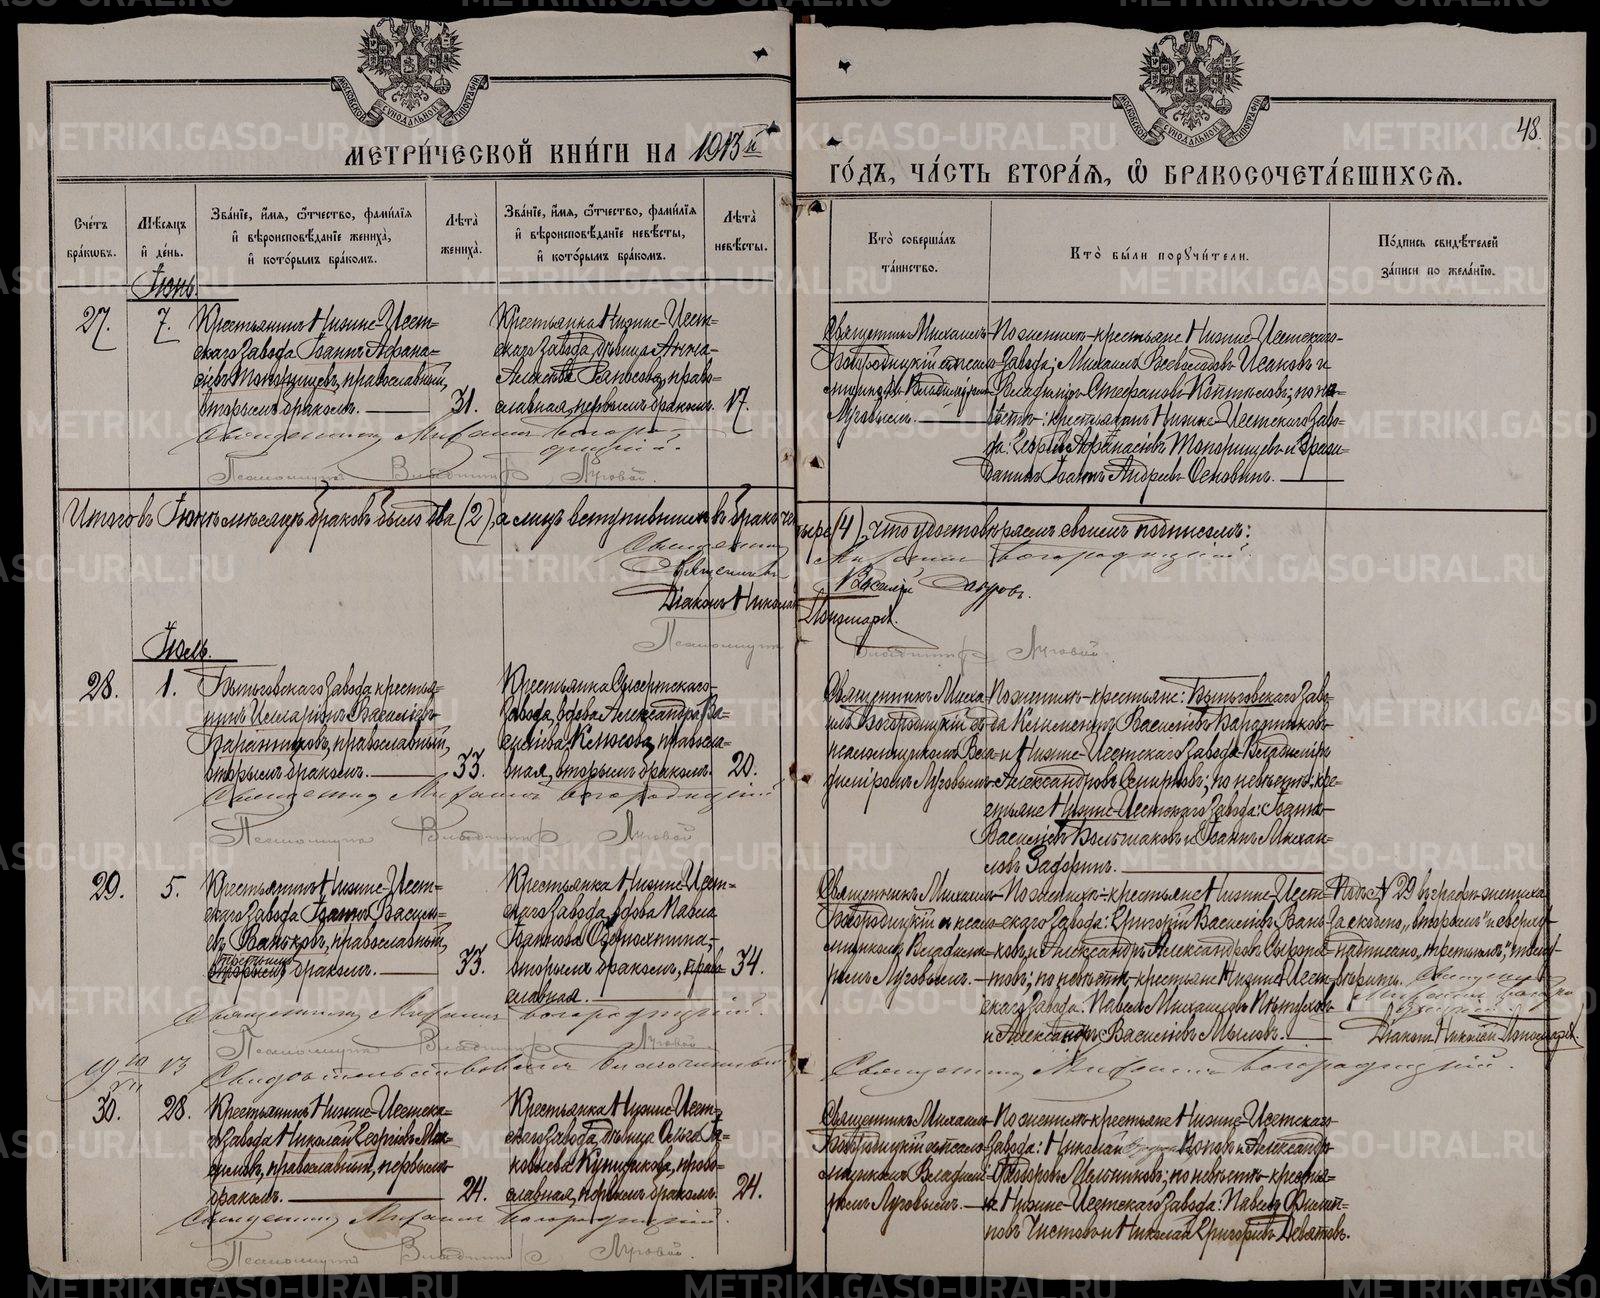 МЕТРИЧЕСКОЙ КНИГИ НА 1913й
ГОДЪ, ЧАСТЬ ВТОРАЯ, Ѡ БРАКОСОЧЕТАВШИХСЯ.
48.
Счетъ браковъ.
Мѣсяцъ и день.
Званіе, имя, ѻтчество, фамилія и вѣроисповѣданіе жениха, и которымъ бракомъ.
Лѣта жениха.
Званіе, имя, ѻтчество, фамилія и вѣроисповѣданіе невѣсты, и которымъ бракомъ.
Лѣта невѣсты.
Кто совершалъ таинство.
Кто были поручители.
Подпись свидѣтелей записи по желанію.
Іюнь.
27.
7.
Крестьянинъ Нижне-Исет-
скаго завода Іоаннъ Афана-
сіевъ Топорищевъ, православный,
вторымъ бракомъ.
31.
Крестьянка Нижне-Исет-
скаго завода, дѣвица Анна
православная, первымъ бракомъ.
17.
Священникъ Михаилъ
Богородицкій съ псалом-
щикомъ Владиміромъ
Луговымъ.
По женихѣ-крестьяне Нижне-Исетскаго
завода: Михаилъ Всеволодовъ Исаковъ и
Владиміръ Стефановъ Копыловъ; по не-
вѣстѣ: крестьянинъ Нижне-Исетскаго заво-
да: Георгій Афанасіевъ Топорищевъ и гражд-
данинъ Іоаннъ Андреевъ
Священникъ Михаилъ Богородицкій.
Псаломщикъ Владиміръ Луговой.
Итого въ Іюнѣ мѣсяцѣ браковъ было два (2), а лицъ вступившихъ въ бракъ четыре (4), что удостовѣряемъ своимъ подписомъ:
Священникъ Михаилъ Богородицкій.
Священникъ Василій
Діаконъ Николай Пономаревъ.
Псаломщикъ Владиміръ Луговой.
Іюль.
28.
1.
завода крестья-
нинъ Иларіонъ Василіевъ
Баранниковъ, православный,
вторымъ бракомъ.
33.
Крестьянка Сысертскаго
завода, вдова Александра Ва-
силіева православ-
ная, вторымъ бракомъ.
20.
Священникъ Миха-
илъ Богородицкій съ
псаломщикомъ Вла-
диміромъ Луговымъ.
По женихѣ-крестьяне: заво-
да Климентъ Василіевъ Баранниковъ
и Нижне-Исетскаго завода Владиміръ
Александровъ по невѣстѣ: кре-
стьяне Нижне-Исетскаго завода:
Василіевъ Большаковъ и Іоаннъ Михаи-
ловъ
Священникъ Михаилъ Богородицкій
Псаломщикъ Владиміръ Луговой
29.
5.
Крестьянинъ Нижне-Исет-
скаго завода Іоаннъ Василі-
евъ Ваньковъ, православный,
третьимъ
вторымъ бракомъ.
33.
Крестьянка Нижне-Исет-
скаго завода, вдова Павла
Іоаннова
вторымъ бракомъ, право-
славная.
34.
Священникъ Михаилъ
Богородицкій и псалом-
щикомъ Владимі-
ромъ Луговымъ.
По женихѣ-крестьяне Нижне-Исет-
скаго завода: Григорій Василіевъ Вань-
ковъ и Александръ Александровъ
по невѣстѣ-крестьяне Нижне-Исет-
скаго завода: Павелъ Михаиловъ
и Александръ Василіевъ
Подъ № 29 въ графѣ жениха
зачеркнуто „вторымъ" и сверху
надписано „третьимъ",
вѣрить. Священникъ
Михаилъ Богородицкій.
Діаконъ Николай Пономаревъ.
Священникъ Михаилъ Богородицкій.
Псаломщикъ Владиміръ Луговой.
Свидѣтельствовалъ благочинный
Священникъ Михаилъ Богородицкій.
30.
28.
Крестьянинъ Нижне-Исетска-
го завода Николай Георгіевъ Мак-
симовъ, православный, первымъ
бракомъ.
24.
Крестьянка Нижне-Исет-
скаго завода, дѣвица Ольга Іа-
ковлева право-
славная, первымъ бракомъ.
24.
Священникъ Михаилъ
Богородицкій съ псалом-
щикомъ Владимі-
ромъ Луговымъ.
По женихѣ-крестьяне Нижне-Исетскаго
завода: Николай Поповъ и Александръ
Ѳеодоровъ Мельниковъ; по невѣстѣ-крестья-
не Нижне-Исетскаго завода: Павелъ Филип-
повъ Чистовъ и Николай Григоріевъ Девятовъ.
Священникъ Михаилъ Богородицкій.
Псаломщикъ Владиміръ Луговой.
METRIKI.GASO-URAL.RU